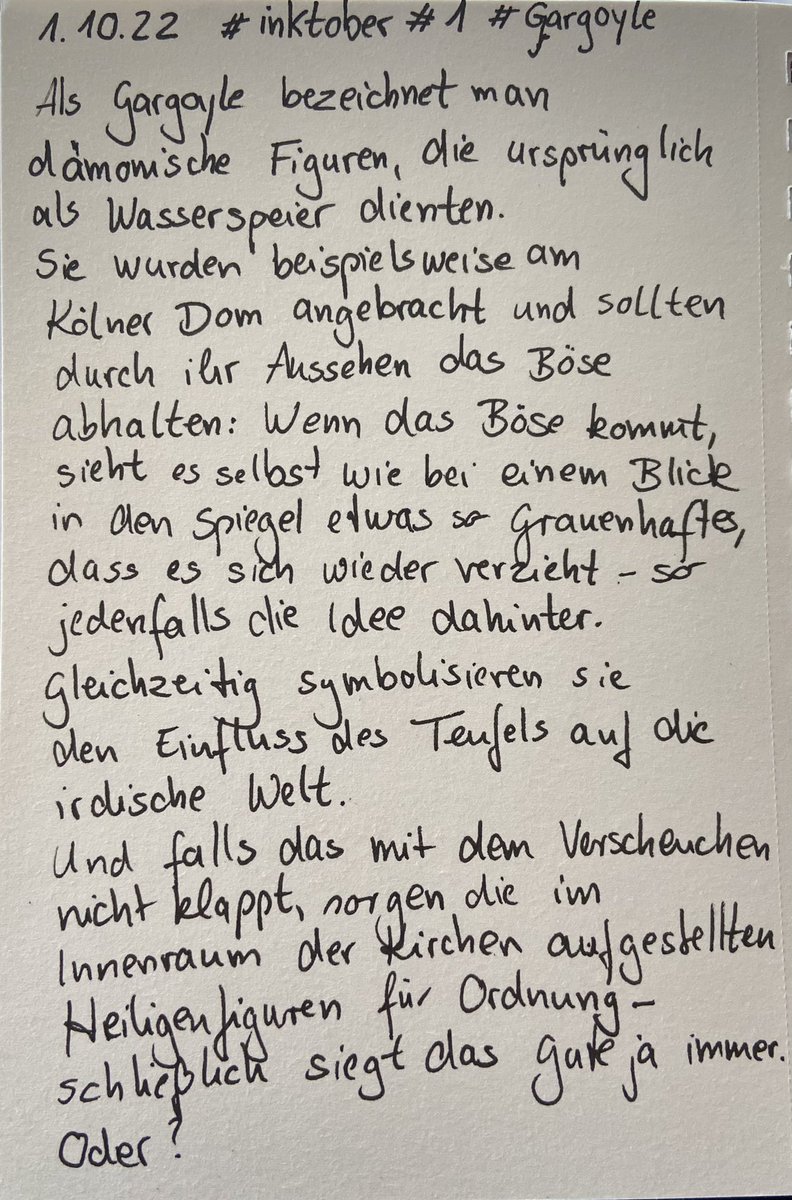 1.10.22 #inktober #1 #Gargoyle
Als Gargoyle bezeichnet man
dämonische Figuren, die ursprünglich
als Wasserspeier dienten.
Sie wurden beispielsweise am
Kölner Dom angebracht und sollten
durch ihr Aussehen das Böse
abhalten: Wenn das Böse kommt,
sieht es selbst wie bei einem Blick
in den Spiegel etwas so Grauenhaftes,
dass es sich wieder verzieht - so
jedenfalls die Idee dahinter.
Gleichzeitig symbolisieren sie
den Einfluss des Teufels auf die
irdische Welt.
Und falls das mit dem Verscheuchen
nicht klappt, sorgen die im
Innenraum der Kirchen aufgestellten
Heiligenfiguren für Ordnung -
schließlich siegt das Gute ja immer.
Oder?